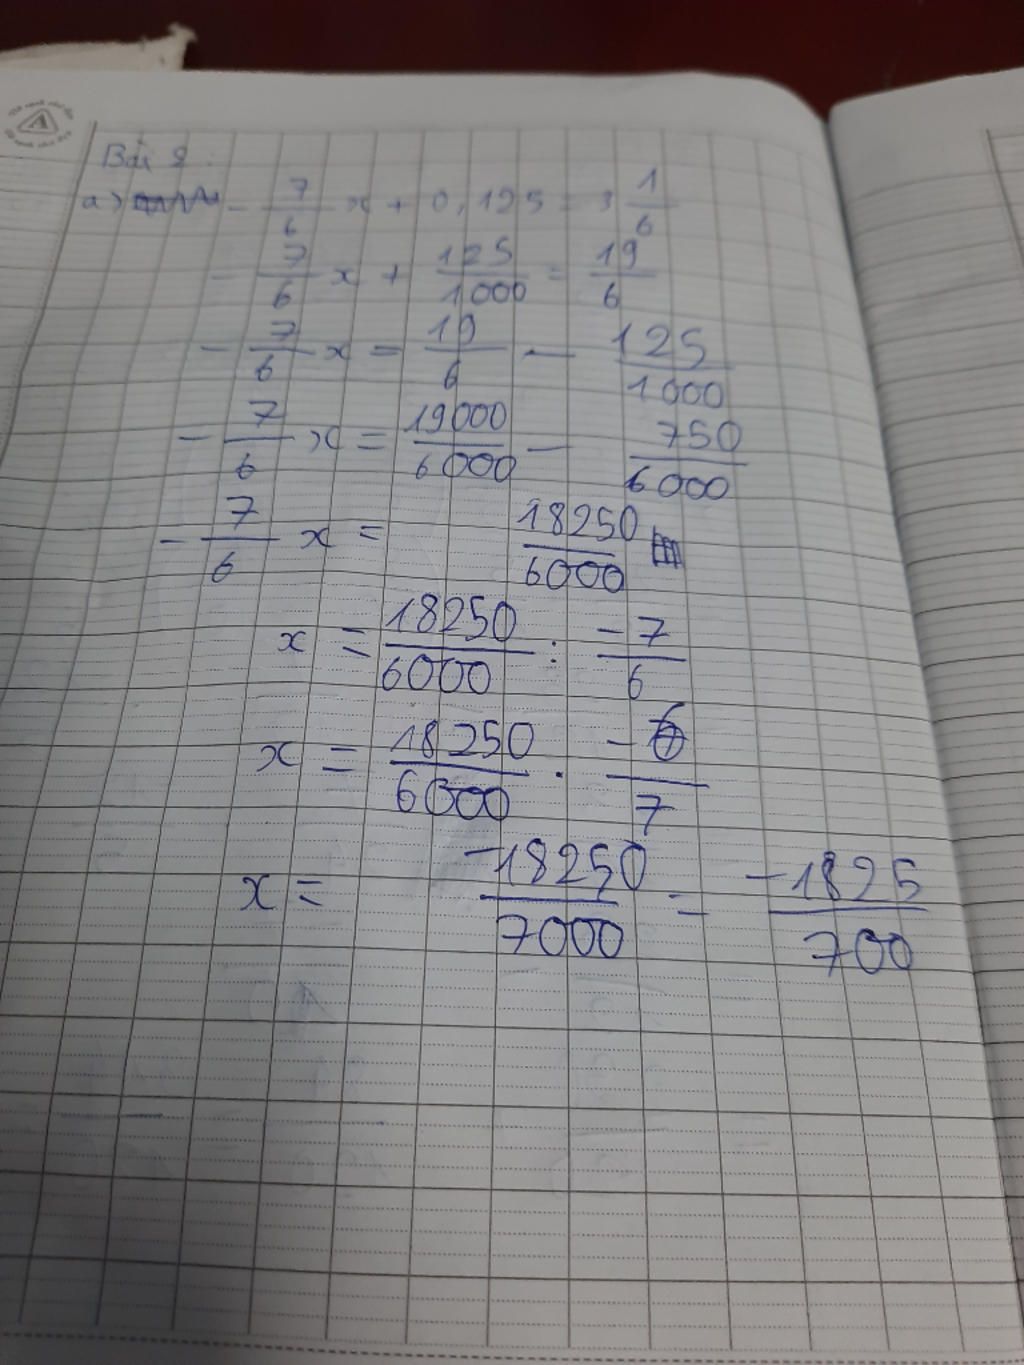 Bài 8:
a) - 7/6 x + 0,125 = 3 1/6
- 7/6 x + 125/1000 = 19/6
- 7/6 x = 19/6 - 125/1000
- 7/6 x = 19000/6000 - 750/6000
- 7/6 x = 18250/6000
x = 18250/6000 : -7/6
x = 18250/6000 . -6/7
x = -18250/7000 = -1825/700